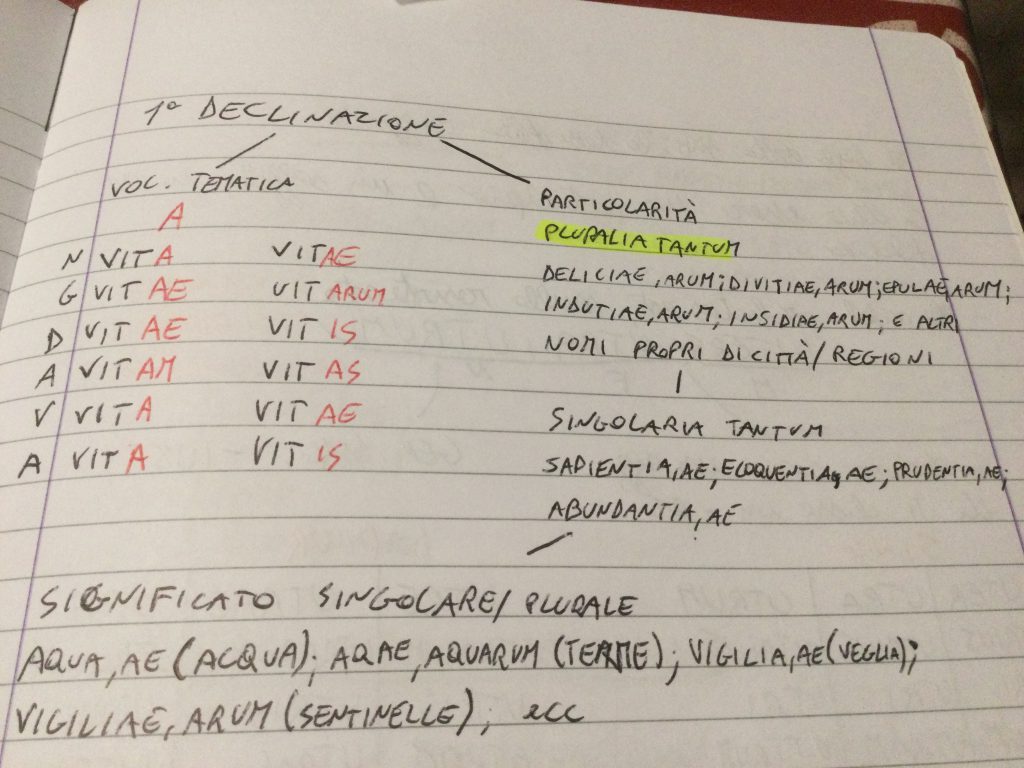 1° DECLINAZIONE
VOC. TEMATICA
A
N VITA VITAE
G VITAE VITARUM
D VITAE VITIS
A VITAM VITAS
V VITA VITAE
A VITA VITIS
PARTICOLARITÀ
PLURALIA TANTUM
DELICIAE, ARUM; DIVITIAE, ARUM; EPULAE, ARUM;
INDUTIAE, ARUM; INSIDIAE, ARUM; E ALTRI
NOMI PROPRI DI CITTÀ/REGIONI
SINGOLARIA TANTUM
SAPIENTIA, AE; ELOQUENTIA, AE; PRUDENTIA, AE;
ABUNDANTIA, AE
SIGNIFICATO SINGOLARE/PLURALE
AQUA, AE (ACQUA); AQAE, AQUARUM (TERME); VIGILIA, AE (VEGLIA);
VIGILIAE, ARUM (SENTINELLE); ecc